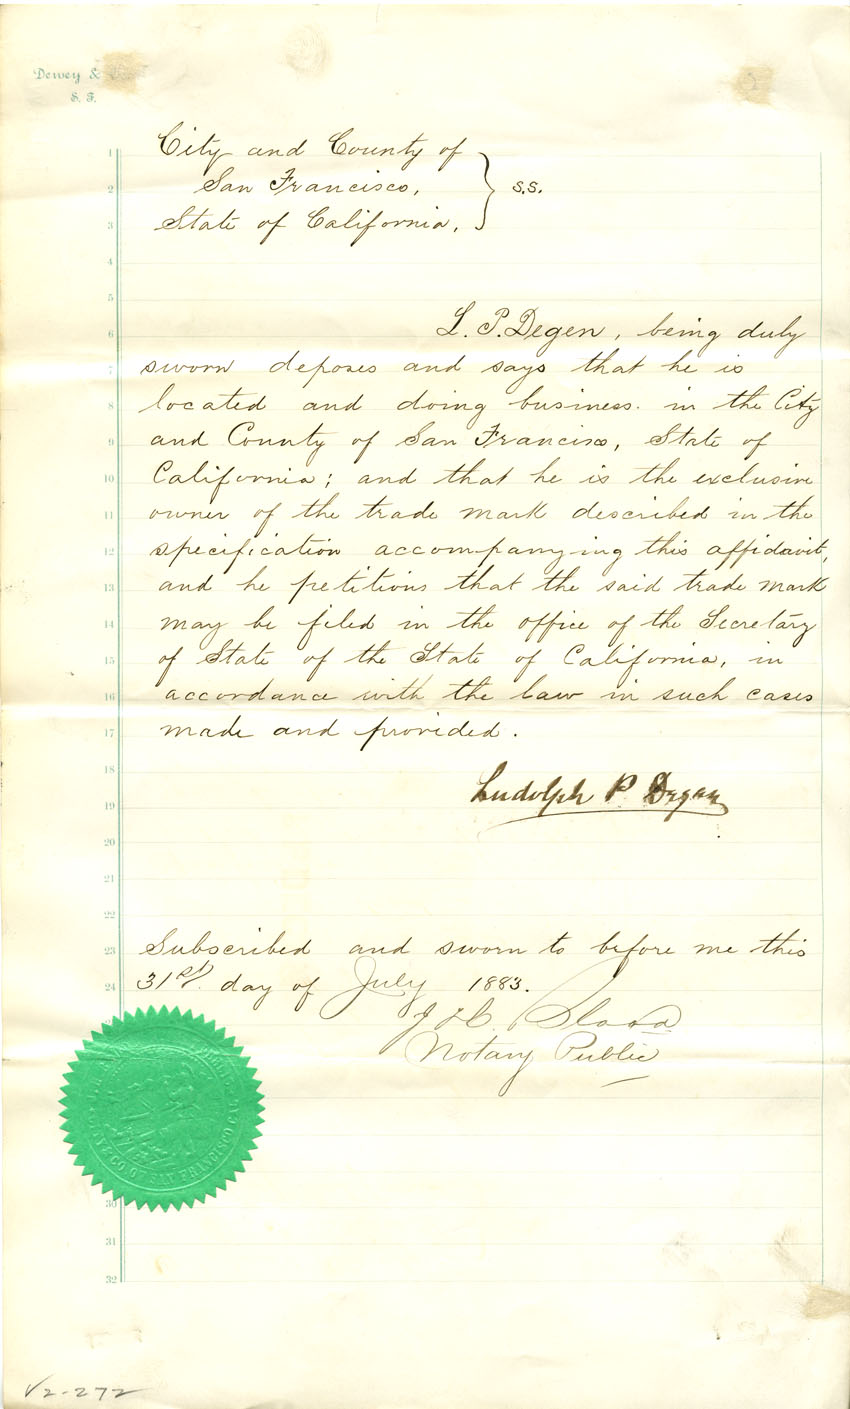 Dewey &
S. F.
City and County of
San Francisco,
State of California,
} s.s.
L. P. Degen, being duly
sworn deposes and says that he is
located and doing business. in the City
and County of San Francisco, State of
California; and that he is the exclusive
owner of the trade mark described in the
specification accompanying this affidavit,
and he petitions that the said trade mark
may be filed in the office of the Secretary
of State of the State of California, in
accordance with the law in such cases
made and provided.
Ludolph P. Degen
Subscribed and sworn to before me this
31st day of July 1883.
Notary Public
CO. OF SAN FRANCISCO CAL
1
2
3
4
5
6
7
8
9
10
11
12
13
14
15
16
17
18
19
20
21
22
23
24
30
31
32
V2-272